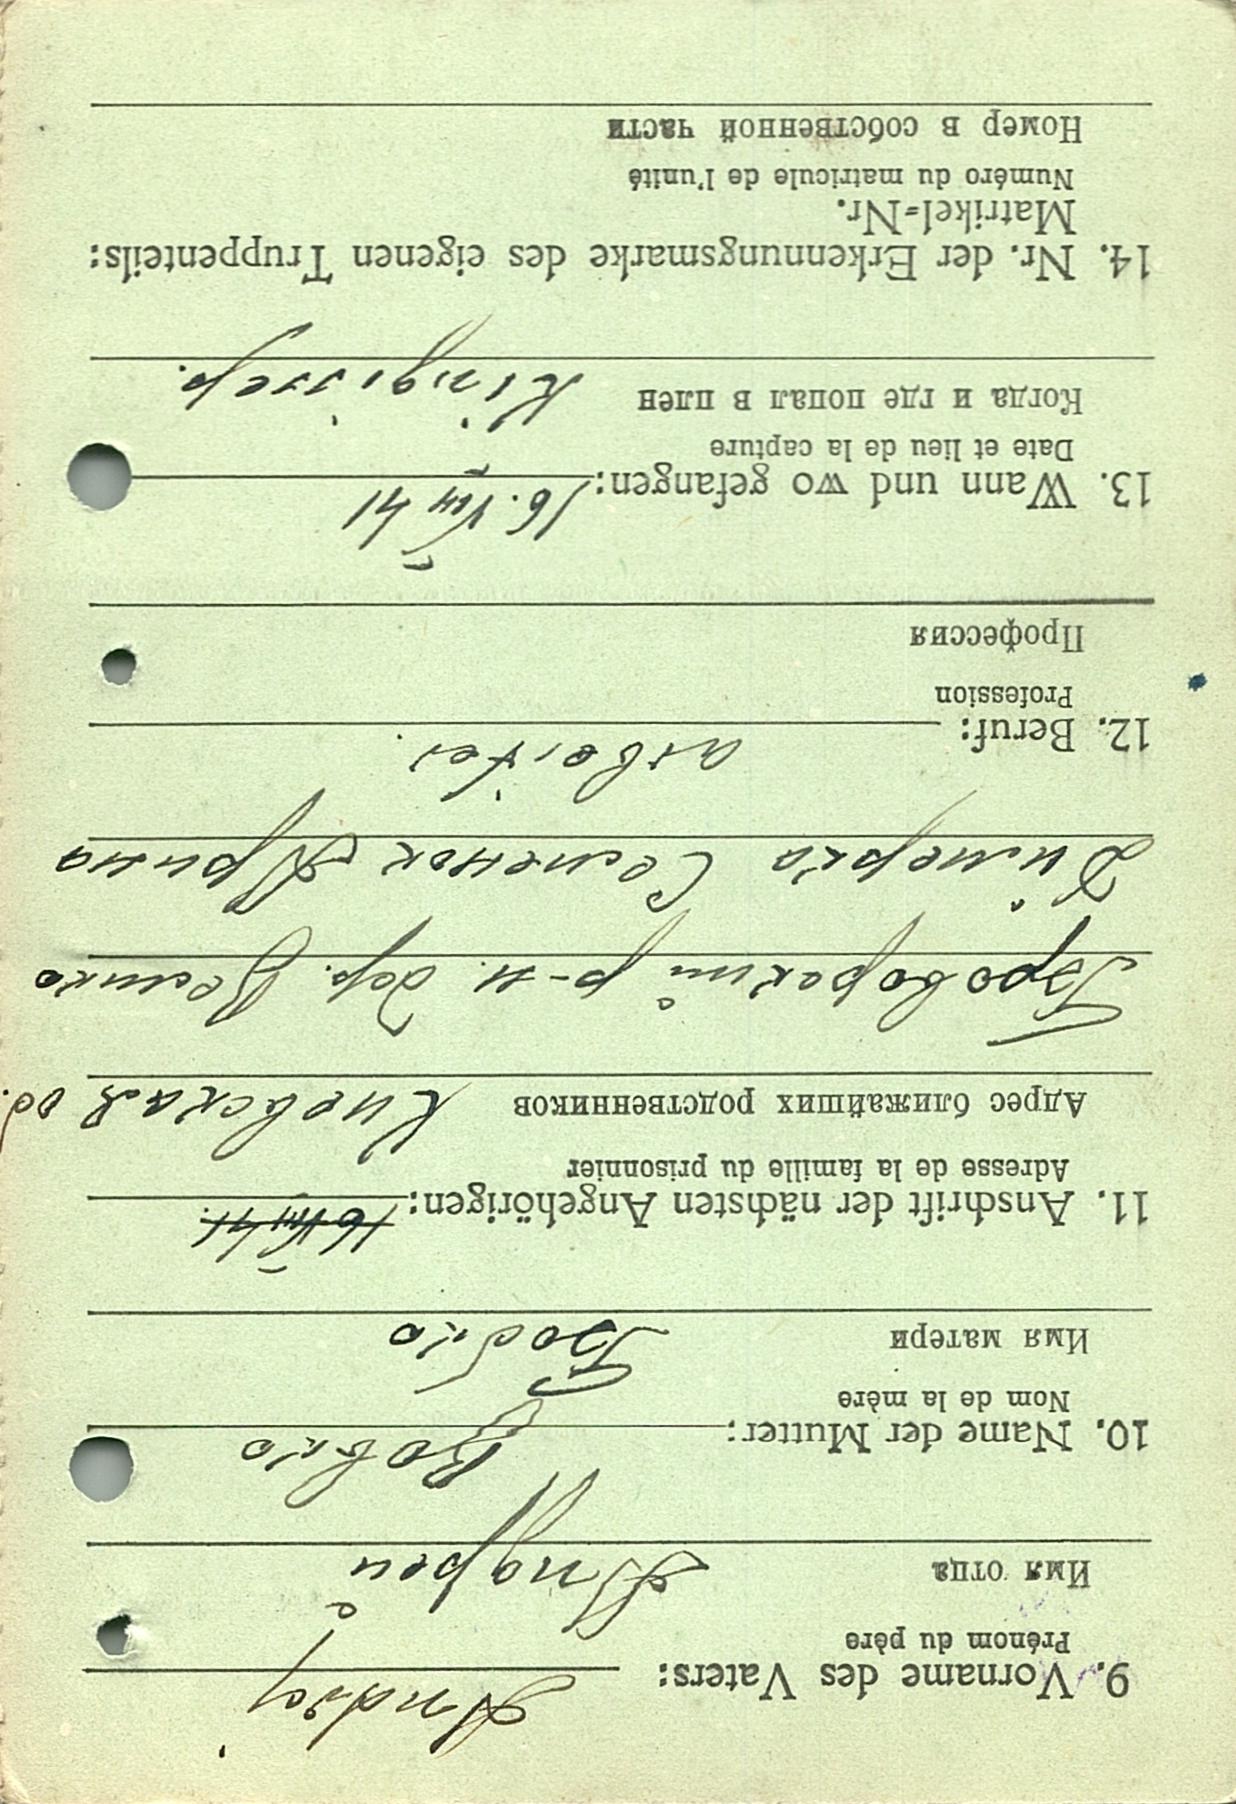 9. Vorname des Vaters: Andrej
Prénom du père
Имя отца Андрей
10. Name der Mutter: Bobko
Nom de la mère
Имя матери Бобко
11. Anschrift der nächsten Angehörigen: 16.VIII 41.
Adresse de la famille du prisonnier
Адрес ближайших родственников Киевская об.
Броворский р-н. дер. Велико
Димерка Семенок Арина
12. Beruf: arbeiter.
Profession
Профессия
13. Wann und wo gefangen: 16.VIII 41
Date et lieu de la capture
Когда и где попал в плен Kingissep.
14. Nr. der Erkennungsmarke des eigenen Truppenteils:
Matrikel-Nr.
Numéro du matricule de l'unité
Номер в собственной части